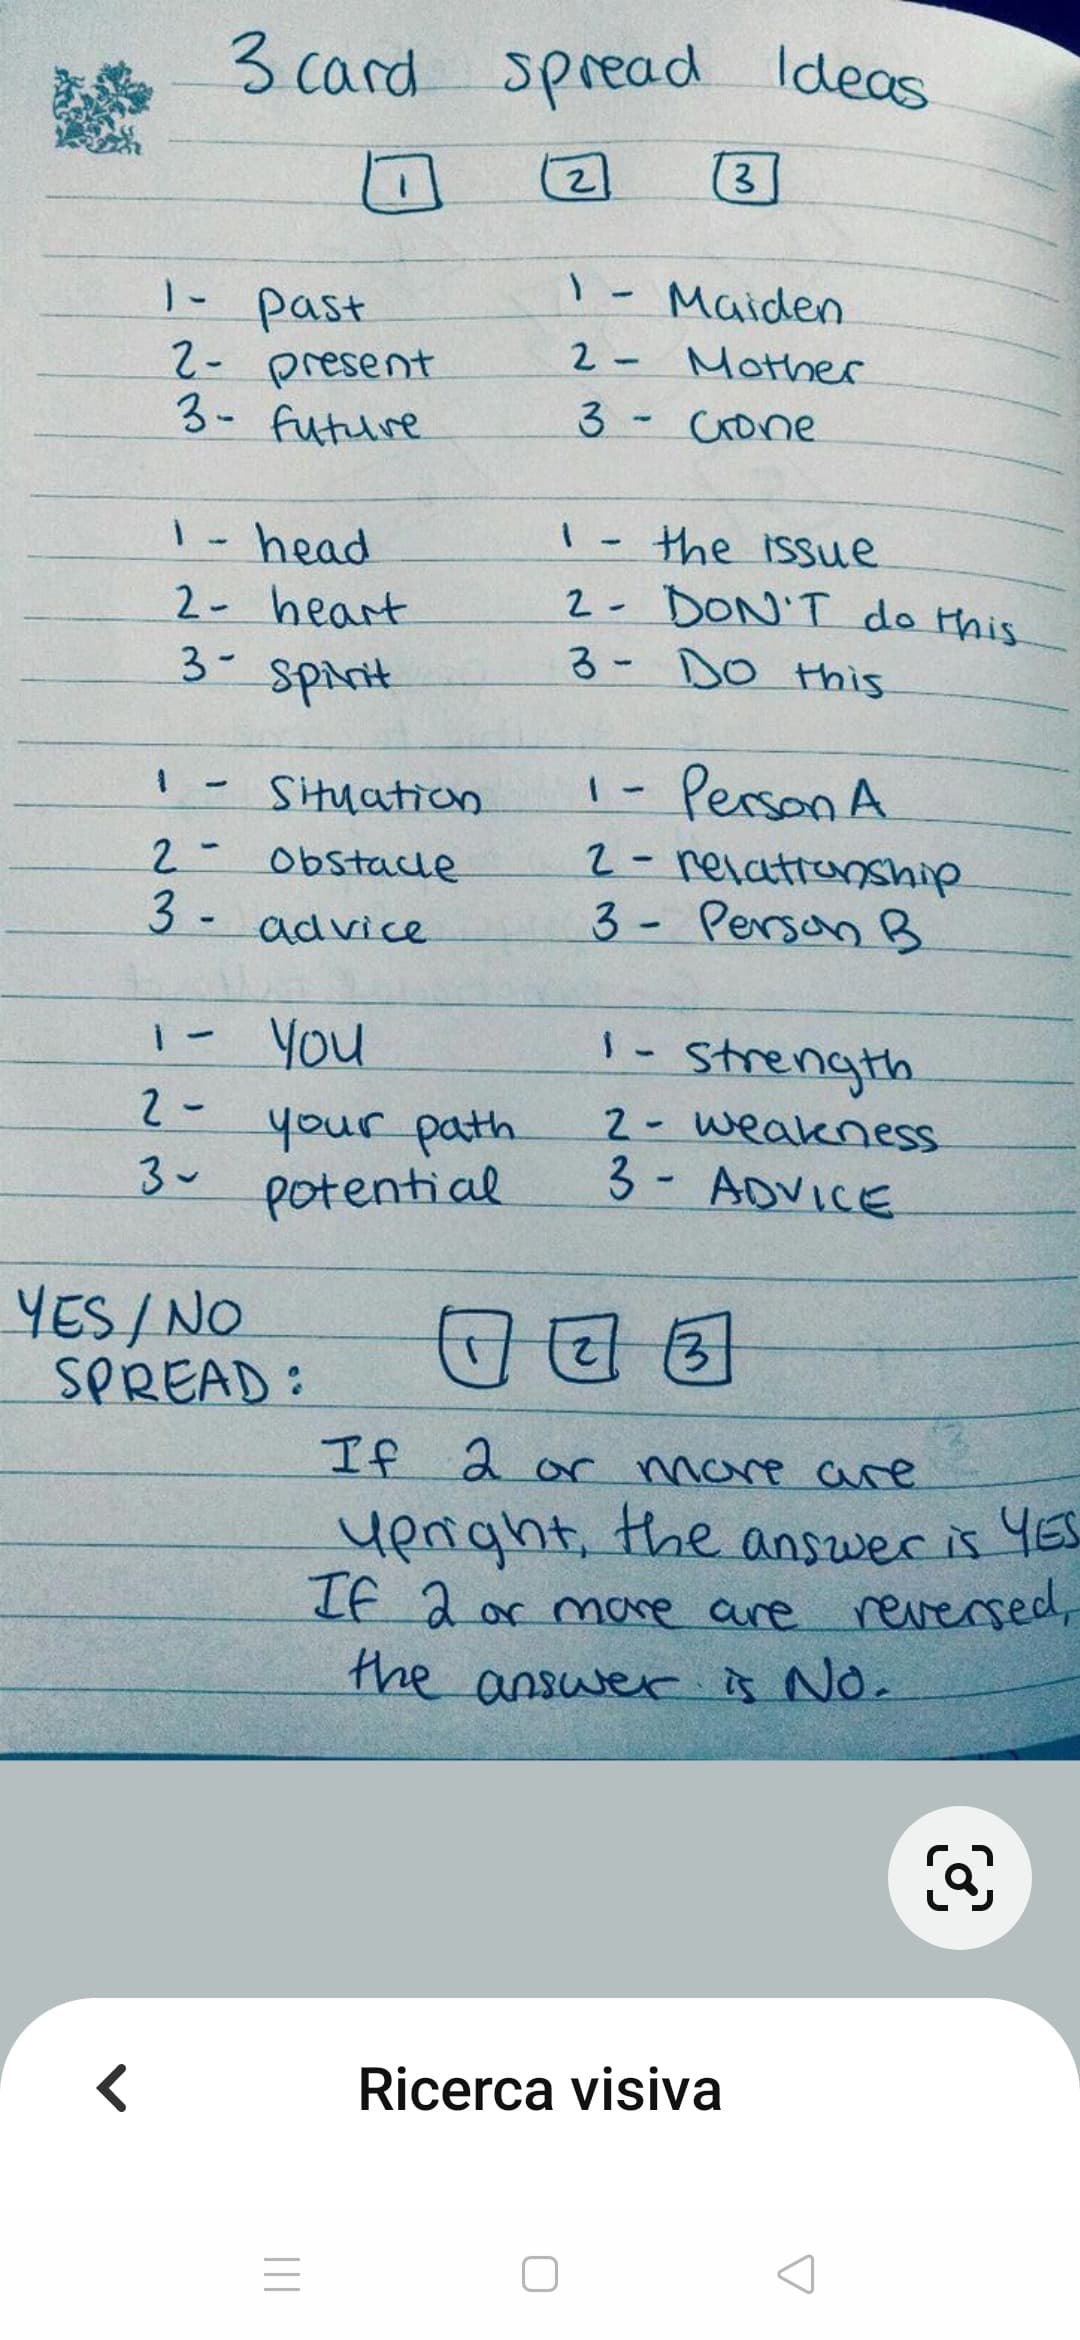 3 card spread Ideas
1 2 3
1 - past
2 - present
3 - future
1 - Maiden
2 - Mother
3 - Crone
1 - head
2 - heart
3 - spirit
1 - the issue
2 - DON'T do this
3 - DO this
1 - Situation
2 - Obstacle
3 - advice
1 - Person A
2 - relationship
3 - Person B
1 - YOU
2 - your path
3 - potential
1 - strength
2 - weakness
3 - ADVICE
YES/NO
SPREAD:
1 2 3
If 2 or more are
upright, the answer is YES
If 2 or more are reversed,
the answer is NO.
Ricerca visiva